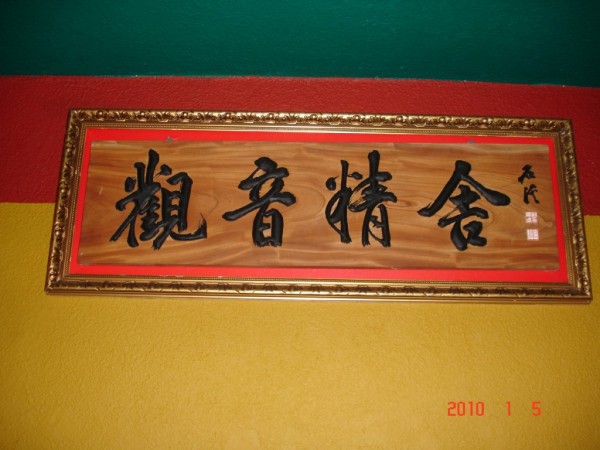 觀音精舍
2010 1 5